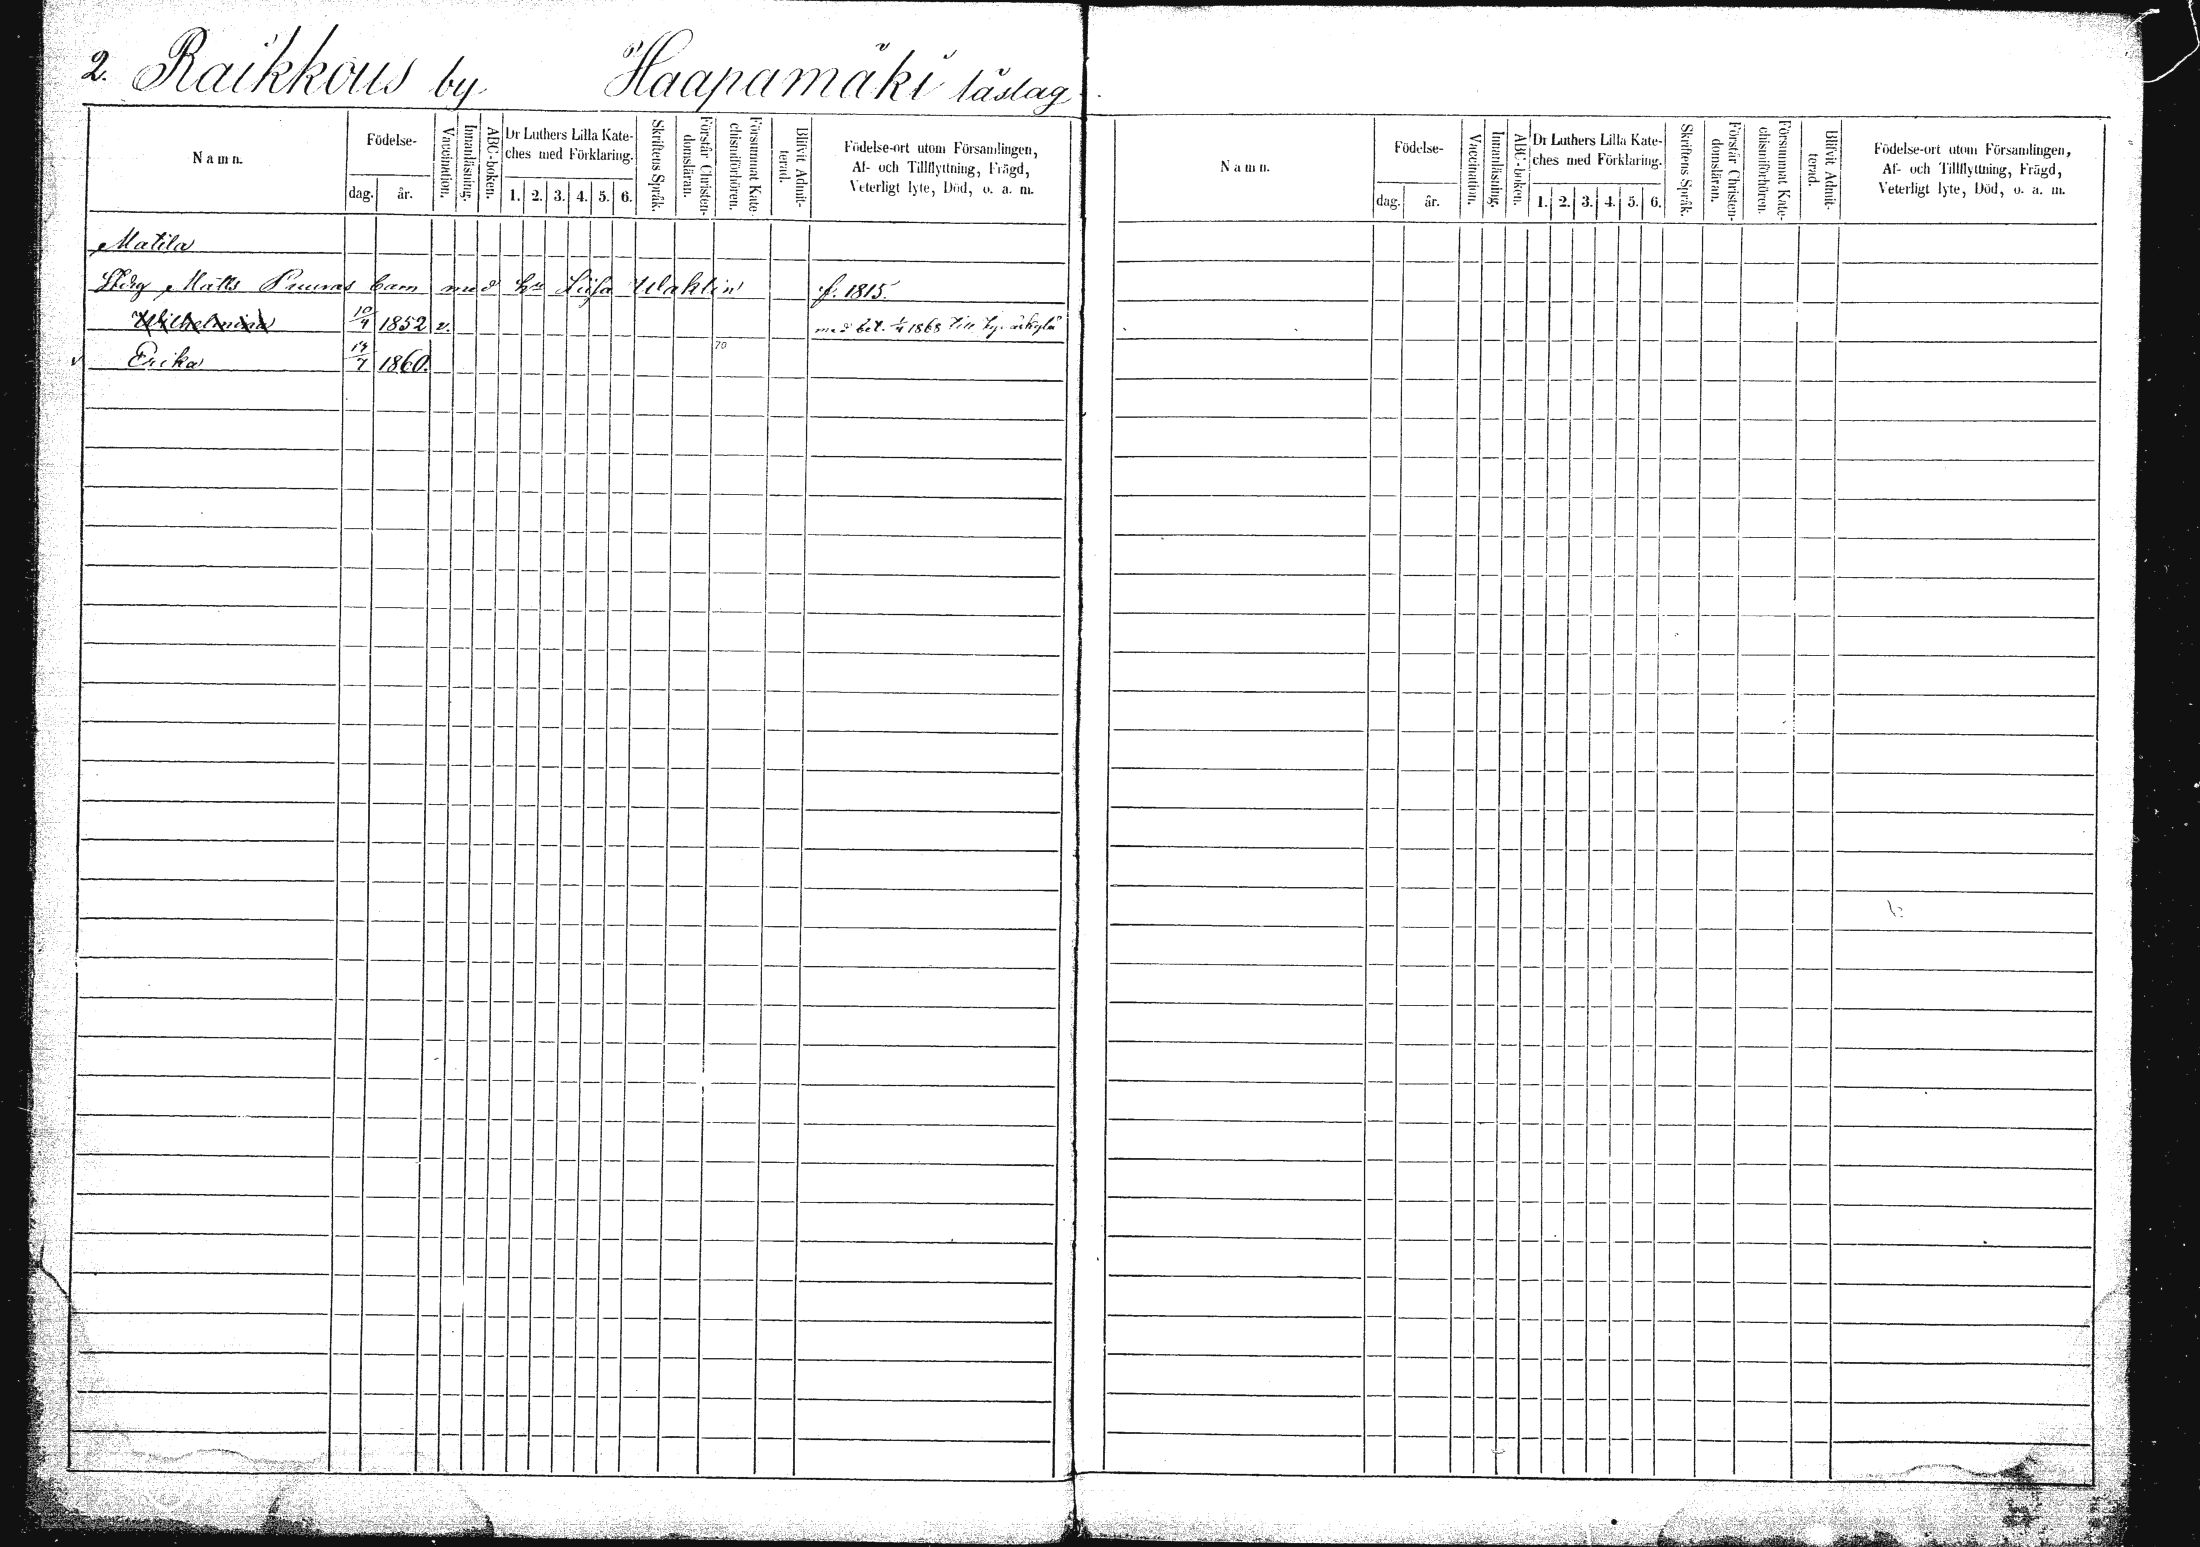 2. Raikkous by Haapamäki läslag
Namn. Födelse- dag. år. Vaccination. Innanläsning. ABC-boken. Dr Luthers Lilla Kateches med Förklaring. 1. 2. 3. 4. 5. 6. Skriftens Språk. Förstår Christendomsläran. Försummat Katechismiförhören. Blifvit Admitterad. Födelse-ort utom Församlingen, Af- och Tillflyttning, Frägd, Veterligt lyte, Död, o. a. m.
Matila
Matts barn med h:u Lisa f. 1815.
Wilhelmina 10/4 1852 v. med bet. 1868 till
v Erika 1860. 70
Namn. Födelse- dag. år. Vaccination. Innanläsning. ABC-boken. Dr Luthers Lilla Kateches med Förklaring. 1. 2. 3. 4. 5. 6. Skriftens Språk. Förstår Christendomsläran. Försummat Katechismiförhören. Blifvit Admitterad. Födelse-ort utom Församlingen, Af- och Tillflyttning, Frägd, Veterligt lyte, Död, o. a. m.